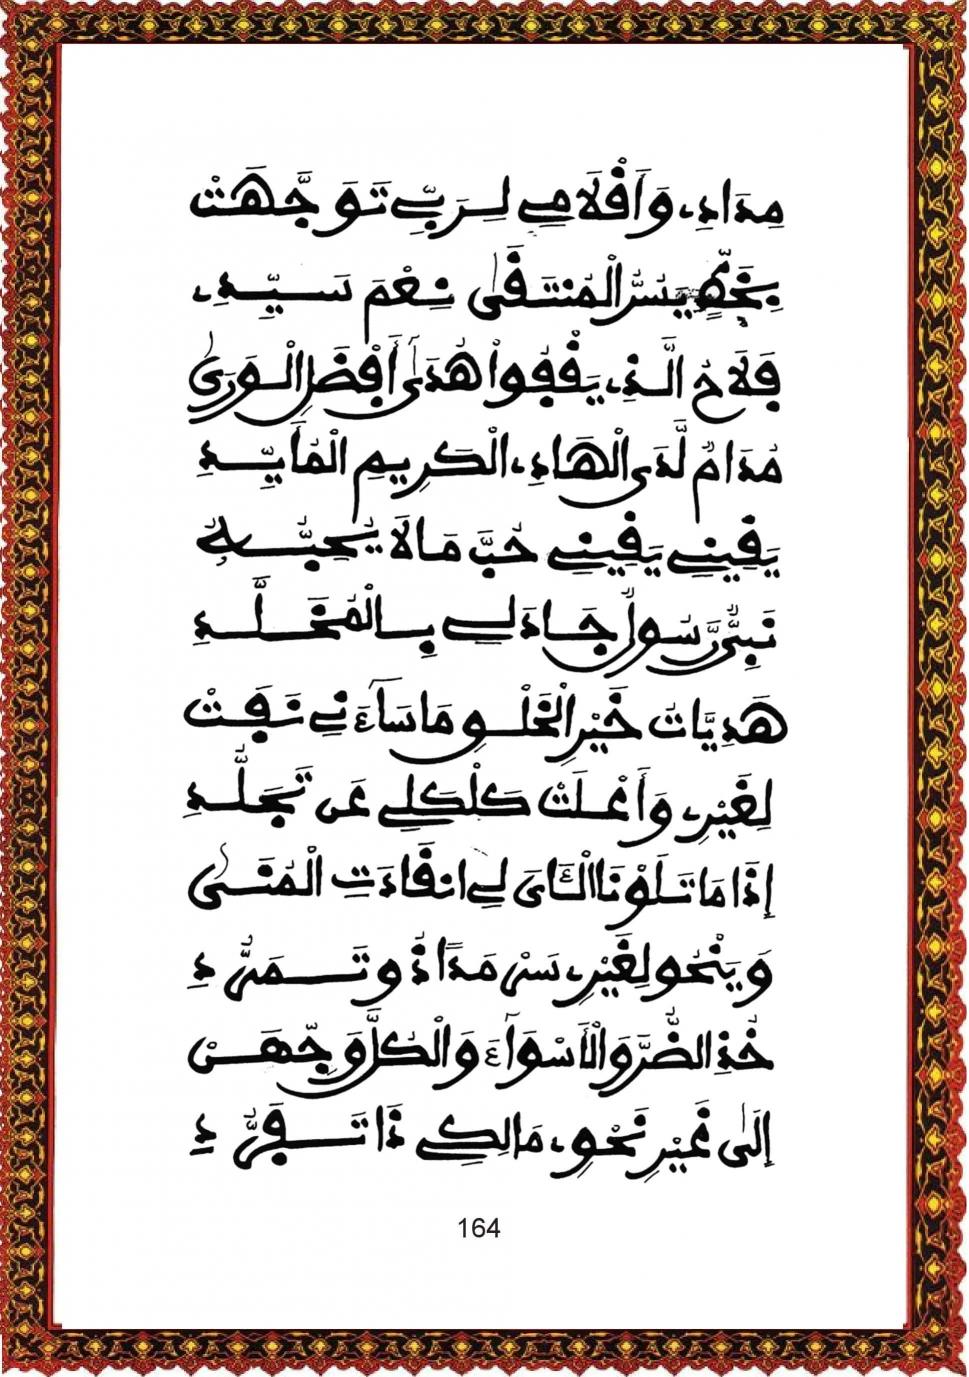 مِدَادِے وَأَقْلَامِے لِرَبِّے تَوَجَّهَتْ
بِخَطٍّ يَسُرُّ الْمُنتَفَىٰ نِعْمَ سَيِّدِے
فَلَاحُ الَّذِے يَقْفُوا هُدَىٰ أَفْضَلِ الْوَرَىٰ
مُدَامٌ لَّدَى الْهَادِے الْكَرِيمِ الْمُأَيِّدِ
يَقِينِے يَقِينِے حُبَّ مَا لَا يُحِبُّهُ
نَبِيٌّ رَسُولٌ جَادَ لِے بِالْمُخَلَّدِ
هَدِيَّاتُ خَيْرِ الْخَلْقِ مَا سَآءَنِے نَفَتْ
لِغَيْرِے وَأَعْمَلَتْ كَلْكَلِے عَن تَجَلُّدِ
إِذَا مَا تَلَوْنَا الْأَىَ لِے انقَادَتِ الْمُنَىٰ
وَيَنْحُو لِغَيْرِے مَن مَدًا ذُو تَمَرُّدِ
خُذِ الضُّرَّ وَالْأَسْوَآءَ وَالْكُلَّ وَجِّهَنْ
إِلَىٰ غَيْرِ نَحْوِے مَالِكِے ذَا تَفَرُّدِ
164